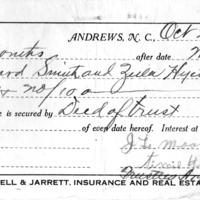 ANDREWS, N. C., Oct
onths after date
ard Smith and Zula Hy
no/100
e is secured by Deed of trust
of even date hereof. Interest at
J. L. Moo
Trustees
ELL & JARRETT, INSURANCE AND REAL ESTAT